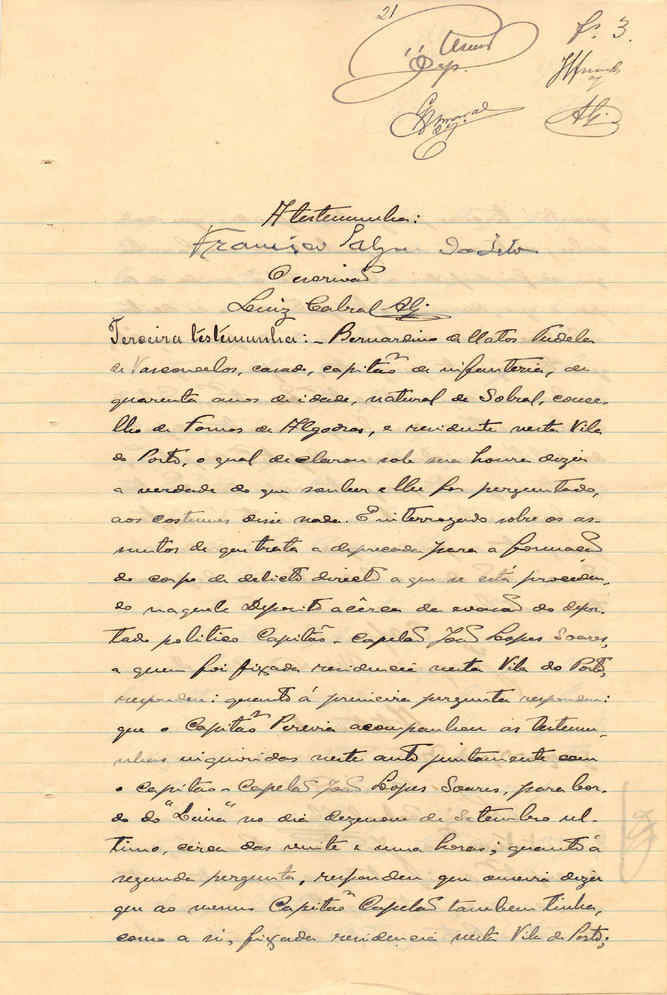 21
fs. 3.
A testemunha:
Francisco
O escrivão
Luiz Cabral Alf.
Terceira testemunha: - Bernardino de Matos Tudela
de Vasconcelos, casado, capitão de infanteria, de
quarenta anos de idade, natural de Sobral, conce-
lho de Fornos de Algodres, e residente nesta Vila
do Porto, o qual declarou sob sua honra dizer
a verdade do que souber e lhe for perguntado,
aos costumes disse nada. E interrogado sobre os as-
suntos de que trata a deprecada para a formação
do corpo de delicto directo a que se está proceden-
do naquele Deposito acêrca da evasão do depor-
tado politico Capitão-capelão João Lopes Soares,
a quem foi fixada residencia nesta Vila do Porto,
respondeu: quanto á primeira pergunta respondeu:
que o Capitão Pereira acompanhou as testemu-
nhas inquiridas neste auto juntamente com
o capitão-Capelão João Lopes Soares, para bor-
do do "Lima" no dia dezenove de Setembro ul-
timo, cêrca das vinte e uma horas; quanto á
segunda pergunta, respondeu que ouvira dizer
que ao mesmo Capitão Capelão tambem tinha,
como a si, fixada residencia nesta Vila do Porto;